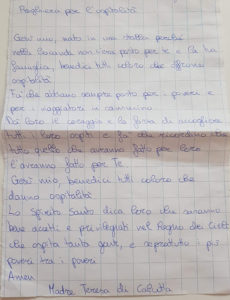 Preghiera per l'ospitalità
Gesù mio, nato in una stalla perché
nella locanda non c'era posto per te e la tua
famiglia, benedici tutti coloro che offrono
ospitalità
Fa' che abbiano sempre posto per i poveri e
per i viaggiatori in cammino
Dai loro il coraggio e la forza di accogliere
tutti i loro ospiti e fa che ricordino che
tutto quello che avranno fatto per loro
l'avranno fatto per Te
Gesù mio, benedici tutti coloro che
danno ospitalità
Lo Spirito Santo dica loro che saranno
bene accolti e privilegiati nel Regno dei Cieli
che ospita tanta gente, e soprattutto i più
poveri tra i poveri
Amen
Madre Teresa di Calcutta